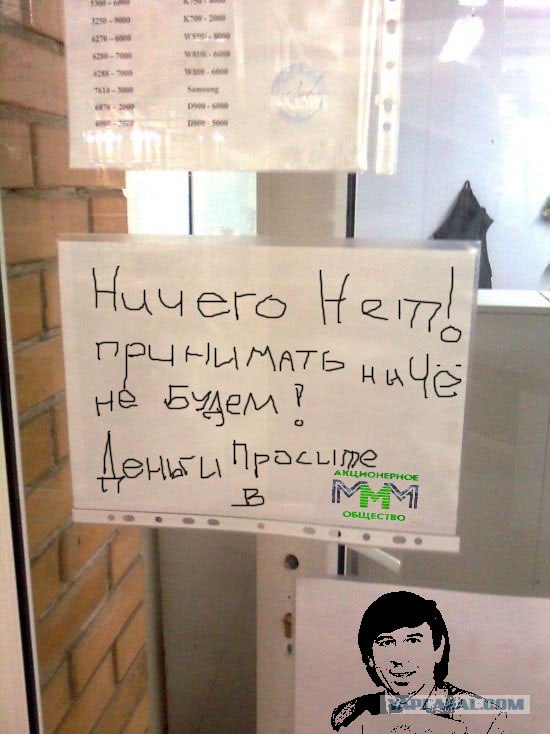 5300 - 6000 K750 - 4000
3250 - 9000 K700 - 2000
6270 - 6000 W850i - 8000
6280 - 7000 W810i - 6000
6288 - 7000 W800 - 6000
7610 - 3000 Samsung
6070 - 2000 D900 - 6000
6080 - 2020 D800 - 5000
Ничего Нет!
принимать ниЧё
не Будем!
Деньги Просите
В
АКЦИОНЕРНОЕ
МММ
ОБЩЕСТВО
YAPLAKAL.COM